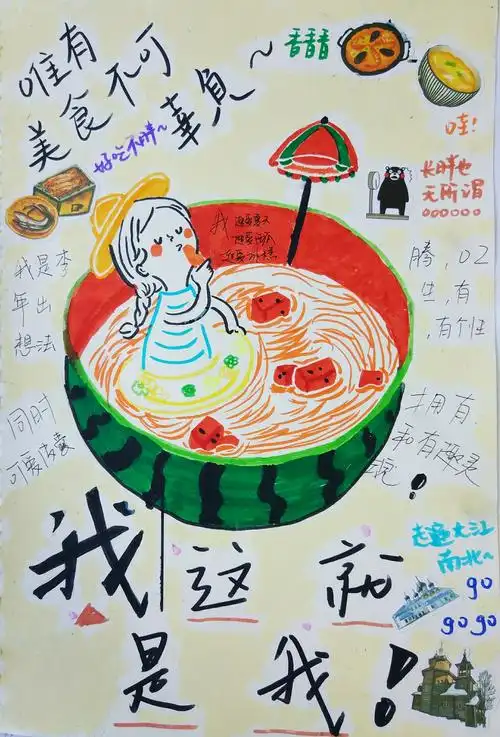 唯有
美食不可
辜負~
香香香
好吃不胖~
哇!
长胖也
无所谓
我
我是李
年出
想法
腾,02
生,有
,有个性
同时
可爱
拥有
和有趣灵
魂!
我这就
是我!
走遍大江
南北~
go
gogo